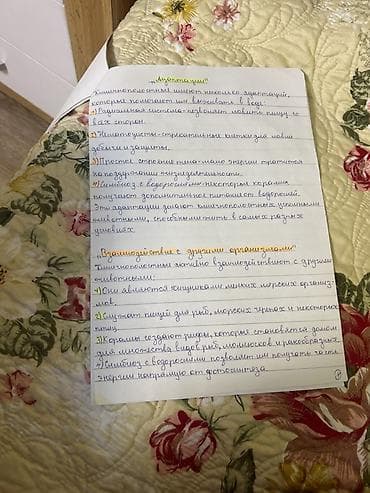 „Адаптации"
Кишечнополостные имеют несколько адаптаций,
которые помогают им выживать в воде:
1) Радиальная система-позволяет ловить пищу со
всех сторон.
2) Нематоцисты-стрекательные клетки для ловли
добычи и защиты.
3) Простое строение тела-мало энергии тратится
на поддержание жизнедеятельности.
4) Симбиоз с водорослями-некоторые кораллы
получают дополнительное питание от водорослей.
Эти адаптации делают кишечнополостных успешными
животными, способными жить в самых разных
условиях.
„Взаимодействие с другими организмами"
Кишечнополостные активно взаимодействуют с другими
животными:
1) Они являются хищниками мелких морских организ-
мов.
2) Служат пищей для рыб, морских звёзд и некоторых
птиц.
3) Кораллы создают рифы, которые становятся домом
для множества видов рыб, моллюсков и ракообразных.
4) Симбиоз с водорослями позволяет им получать часть
энергии напрямую от фотосинтеза.